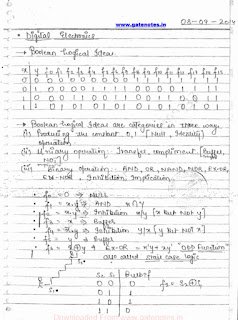 www.gatenotes.in
03-09-201
• Digital Electronics
→ Boolean Logical Ideas
x y f0 f1 f2 f3 f4 f5 f6 f7 f8 f9 f10 f11 f12 f13 f14 f15
0 0 0 0 0 0 0 0 0 0 1 1 1 1 1 1 1 1
0 1 0 0 0 0 1 1 1 1 0 0 0 0 1 1 1 1
1 0 0 0 1 1 0 0 1 1 0 0 1 1 0 0 1 1
1 1 0 1 0 1 0 1 0 1 0 1 0 1 0 1 0 1
→ Boolean Logical Ideas are categories in three way.
(i) Producing the constant 0, 1 [Null, Identity]
operation.
(ii) Unary operation: Transfer, compliment [Buffer,
Not]
(iii) Binary operation: AND, OR, NAND, NOR, EX-OR,
EX-NOR, Inhibition, Implication.
• f0 = 0 → NULL
• f1 = x.y → AND x∩y
• f2 = Inhibition x/y [x But Not y]
• f3 = x → Buffer
• f4 = Inhibition y/x [y But not x]
• f5 = y → Buffer
• f6 = x⊕y → Ex-OR = x'y + xy' "ODD Function"
also called stair case logic
S2 S1 Bulb
0 0 0
0 1 1
1 0 1
1 1 0
Downloaded From www.gatenotes.in